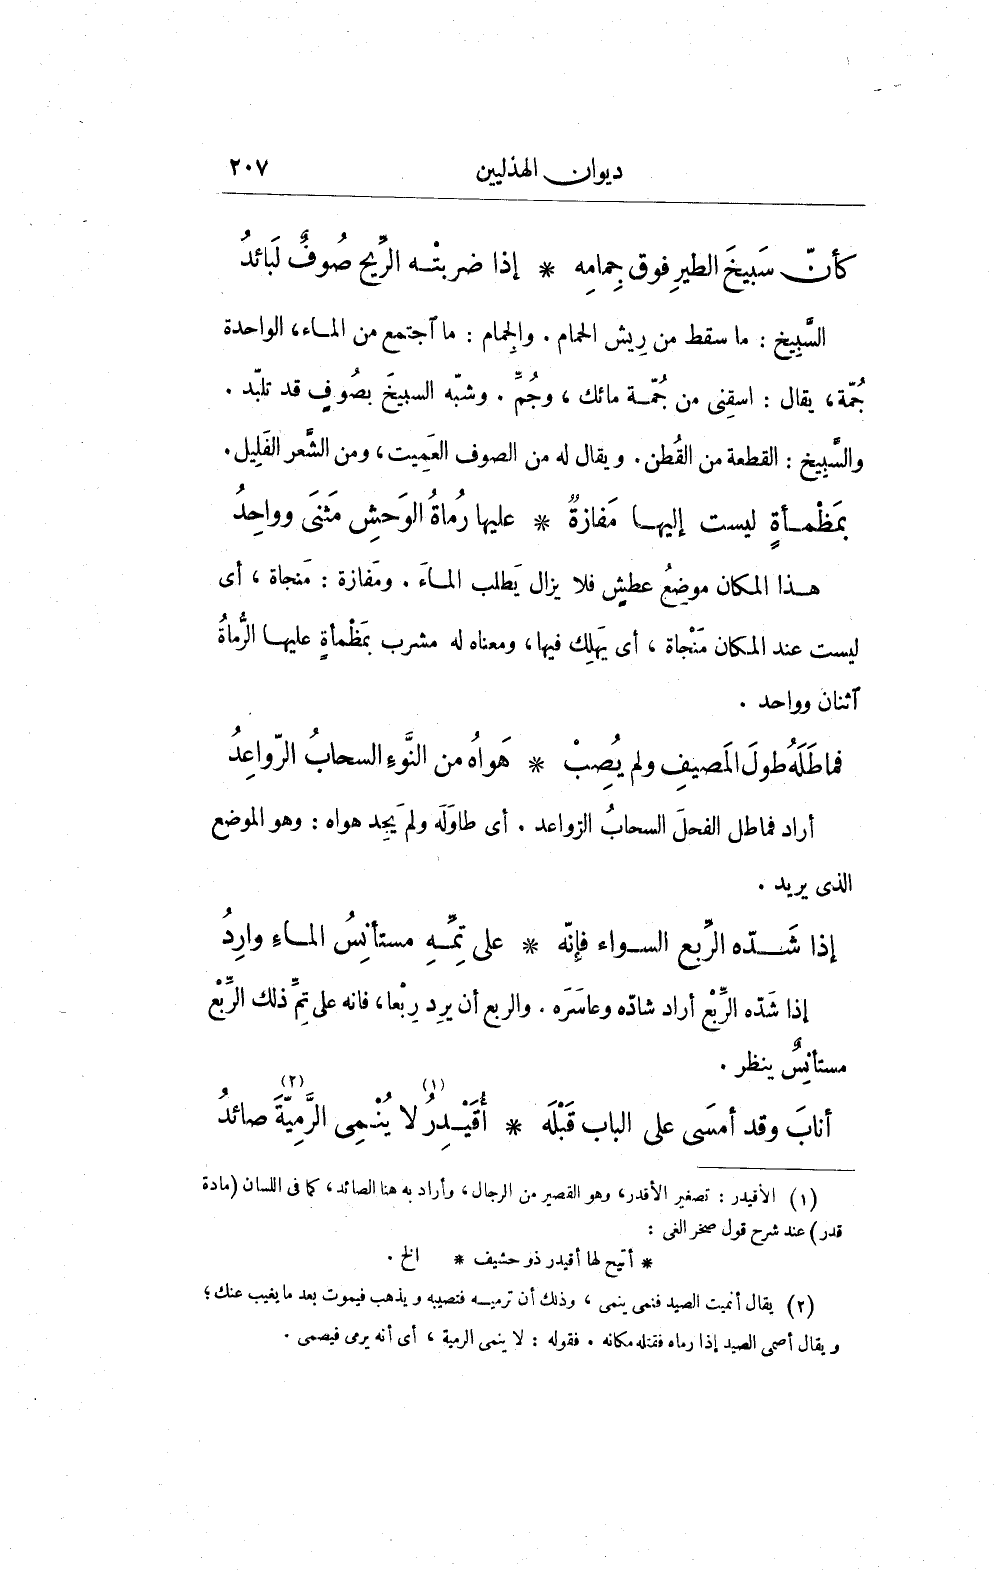 ديوان الهذليين ٢٠٧
كأنّ سَبيخَ الطيرِ فوق جِمامِه * إذا ضربتْه الرِّيح صُوفٌ لَبائدُ
السَّبِيخ : ما سقط من رِيش الحمام . والجِمام : ما آجتمع من الماء، الواحدة
جُمّة، يقال : اسقِنى من جُمّة مائك ، وجُمٍّ . وشبّه السبيخَ بصُوفٍ قد تلبّد .
والسَّبِيخ : القطعة من القُطن. ويقال له من الصوف العَمِيت، ومن الشَّعر الفَلِيل.
بمَظْمأةٍ ليست إليها مَفازةٌ * عليها رُماةُ الوَحشِ مَثنَى وواحِدُ
هذا المكان موضِعُ عطشٍ فلا يزال يَطلب الماءَ . ومَفازة : مَنجاة ، أى
ليست عند المكان مَنْجاة ، أى يَهلِك فيها، ومعناه له مشرب بمَظْمأةٍ عليها الرُّماةُ
آثنان وواحد .
فماطَلَهُ طولَ المَصيفِ ولم يُصِبْ * هَواهُ من النَّوءِ السحابُ الرّواعِدُ
أراد فماطل الفحلَ السحابُ الرواعد . أى طاوَلَه ولم يَجِد هواه : وهو الموضع
الذى يريد .
إذا شَدّه الرِّبع السواء فإنّه * على تِمِّهِ مستأنِسُ الماءِ وارِدُ
إذا شَدّه الرِّبْع أراد شادّه وعاسَرَه . والربع أن يرِد رِبْعا، فانه على تِمِّ ذلك الرِّبْع
مستأنِسٌ ينظر .
أنابَ وقد أمسَى على الباب قَبْلَه * أُقَيْدِرُ (١) لا يُنْمِى الرَّمِيّةَ (٢) صائدُ
(١) الأقيدر : تصغير الأقدر، وهو القصير من الرجال ، وأراد به هنا الصائد، كما فى اللسان (مادة
قدر) عند شرح قول صخر الغى :
* أتيح لها أقيدر ذو حشيف * الخ .
(٢) يقال أنميت الصيد فنمى ينمى ، وذلك أن ترميه فتصيبه ويذهب فيموت بعد ما يغيب عنك ؛
ويقال أصمى الصيد إذا رماه فقتله مكانه . فقوله : لا ينمى الرمية ، أى أنه يرمى فيصمى .